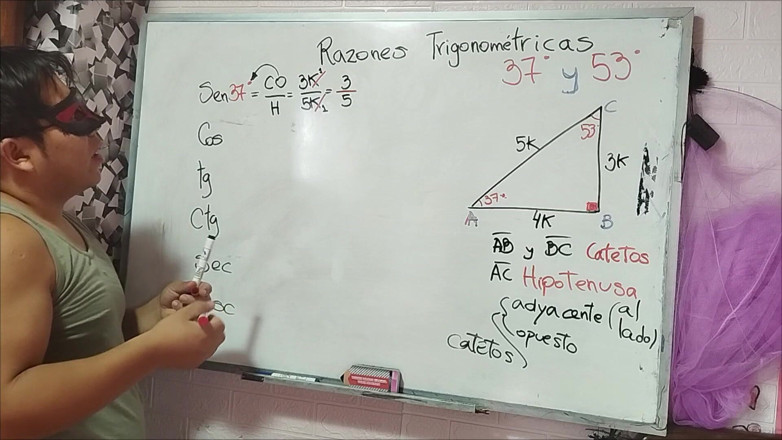 Razones Trigonométricas
37° y 53°
Sen37° = CO/H = 3K/5K = 3/5
Cos
tg
Ctg
Sec
C
53°
5K
3K
37°
A
4K
B
AB y BC Catetos
AC Hipotenusa
catetos { adyacente (al lado)
opuesto